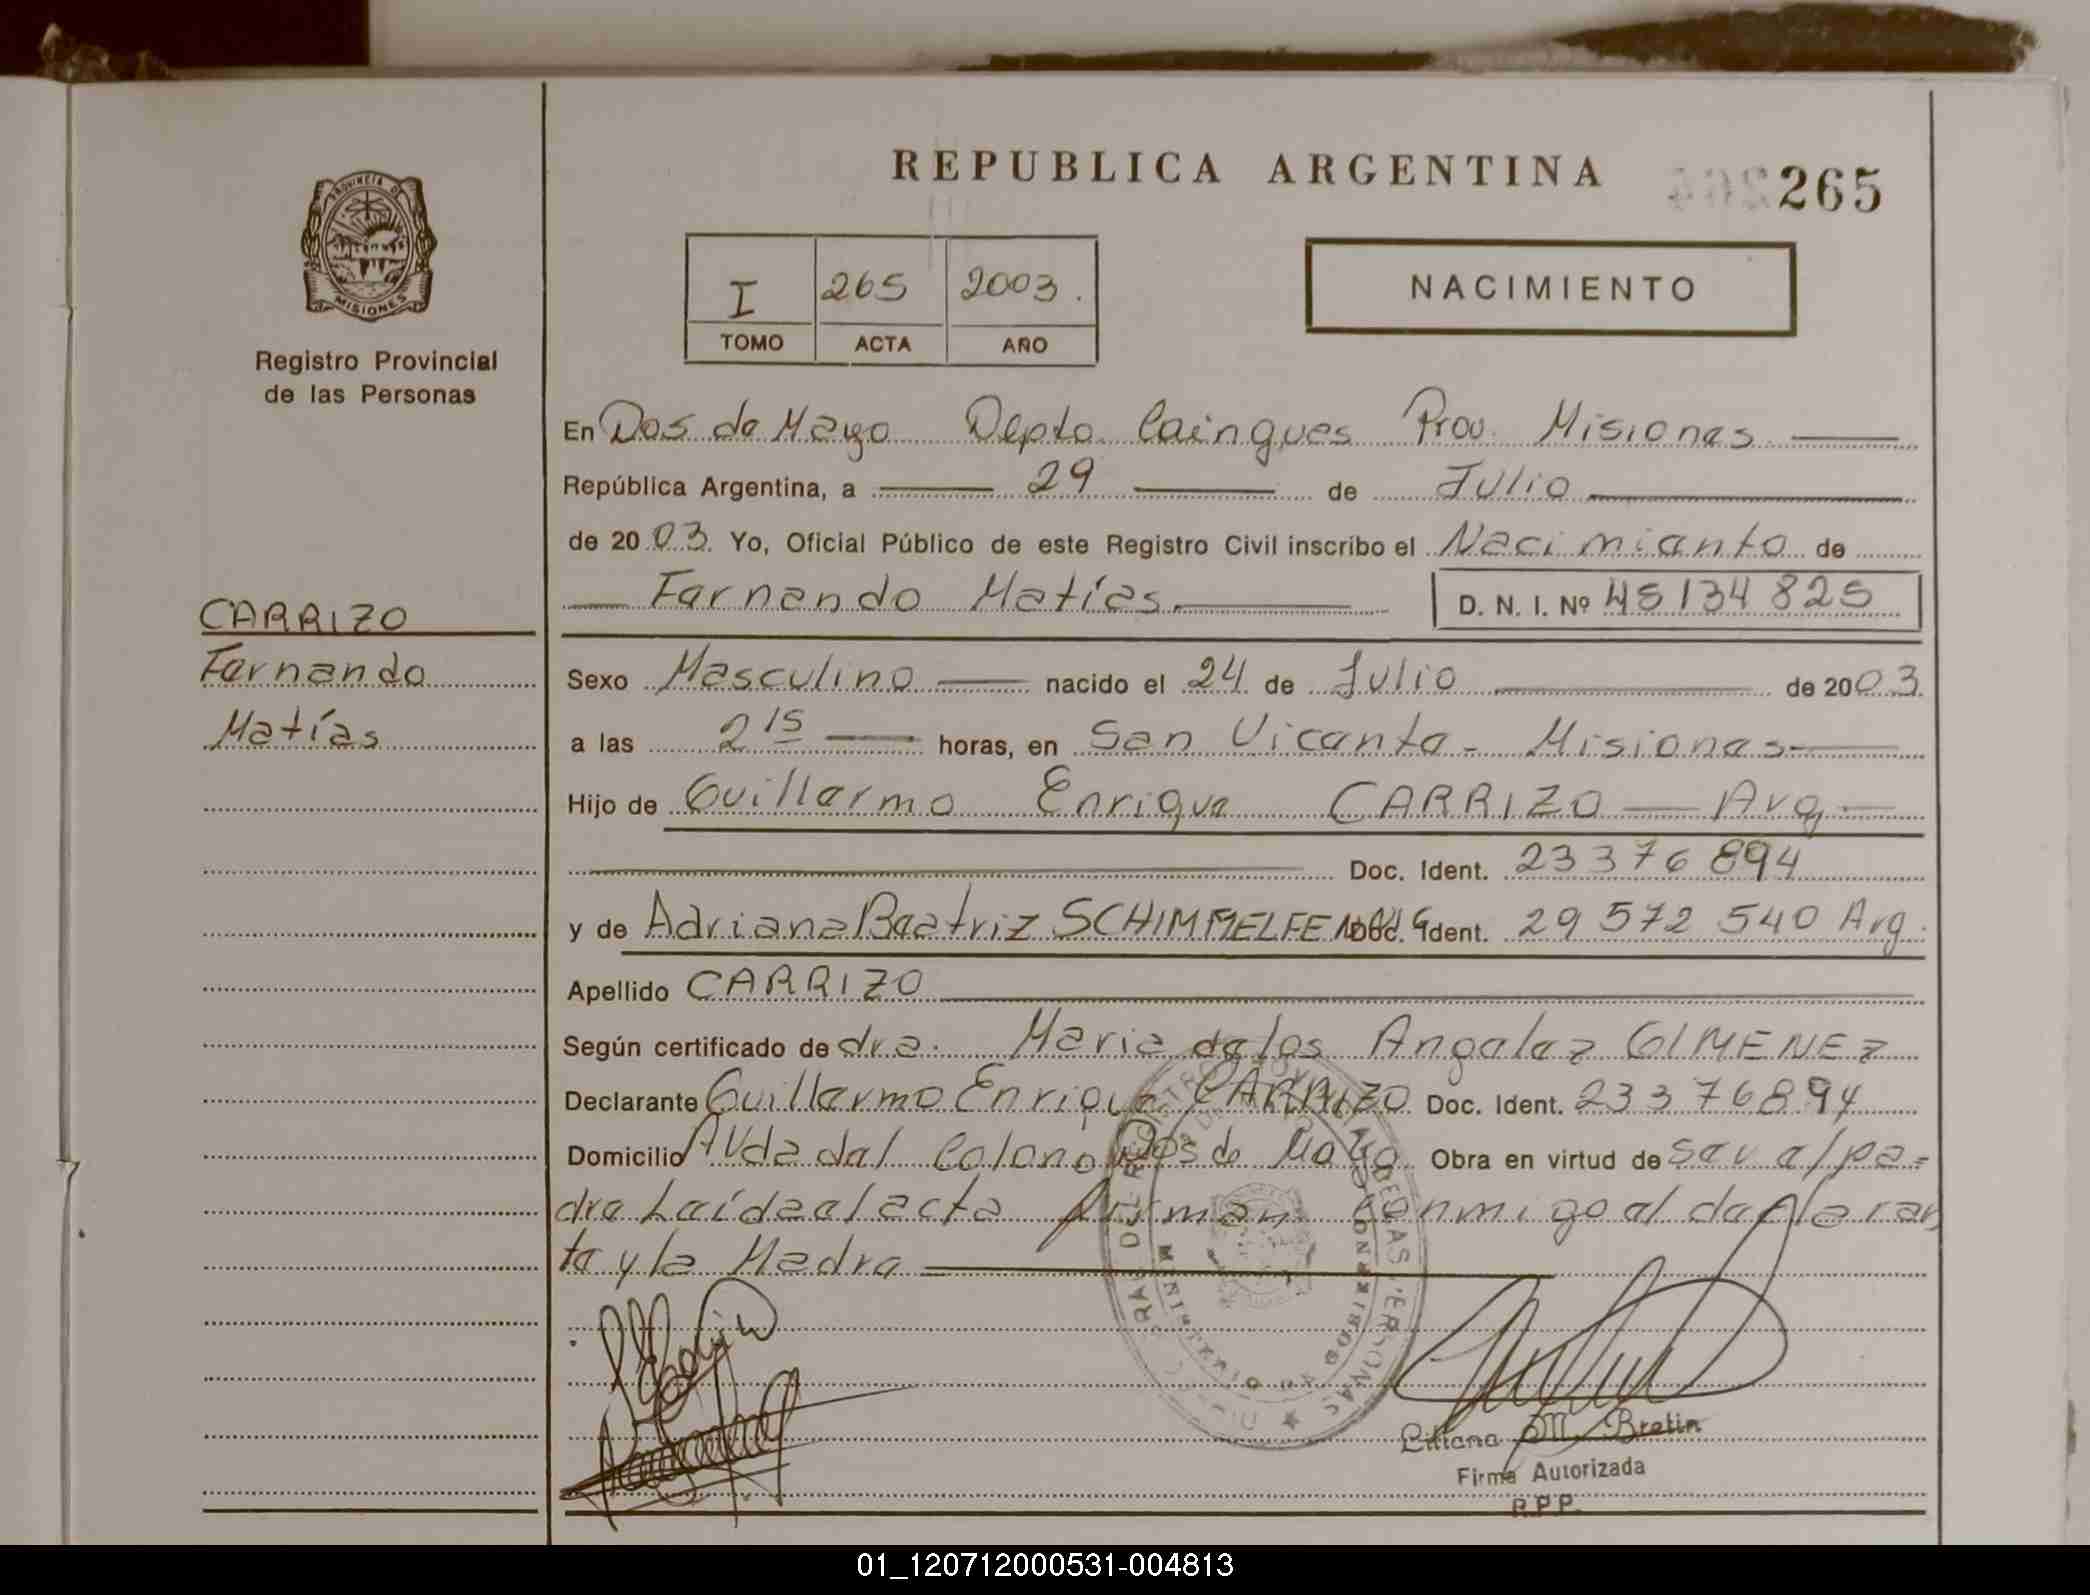 REPUBLICA ARGENTINA
265
PROVINCIA DE
MISIONES
Registro Provincial
de las Personas
I 265 2003.
TOMO ACTA AÑO
NACIMIENTO
En Dos de Mayo Depto. Cainguas Prov. Misiones
República Argentina, a 29 de Julio
de 2003. Yo, Oficial Público de este Registro Civil inscribo el Nacimiento de
Fernando Matías. D. N. I. Nº 45134825
CARRIZO
Fernando
Matías
Sexo Masculino nacido el 24 de Julio de 2003
a las 2 15 horas, en San Vicente - Misiones
Hijo de Guillermo Enrique CARRIZO Arg
Doc. Ident. 23376894
y de Adriana Beatriz SCHIMMELFENNIG Doc. Ident. 29572540 Arg.
Apellido CARRIZO
Según certificado de dra. Maria de los Angelez GIMENEZ
Declarante Guillermo Enrique CARRIZO Doc. Ident. 23376894
Domicilio Avda del Colono Dos de Mayo. Obra en virtud de ser el pa=
dre Leída el acta firman conmigo el declaran
te y la Madre
Liliana M. Bretin
Firma Autorizada
R.P.P.
01_120712000531-004813